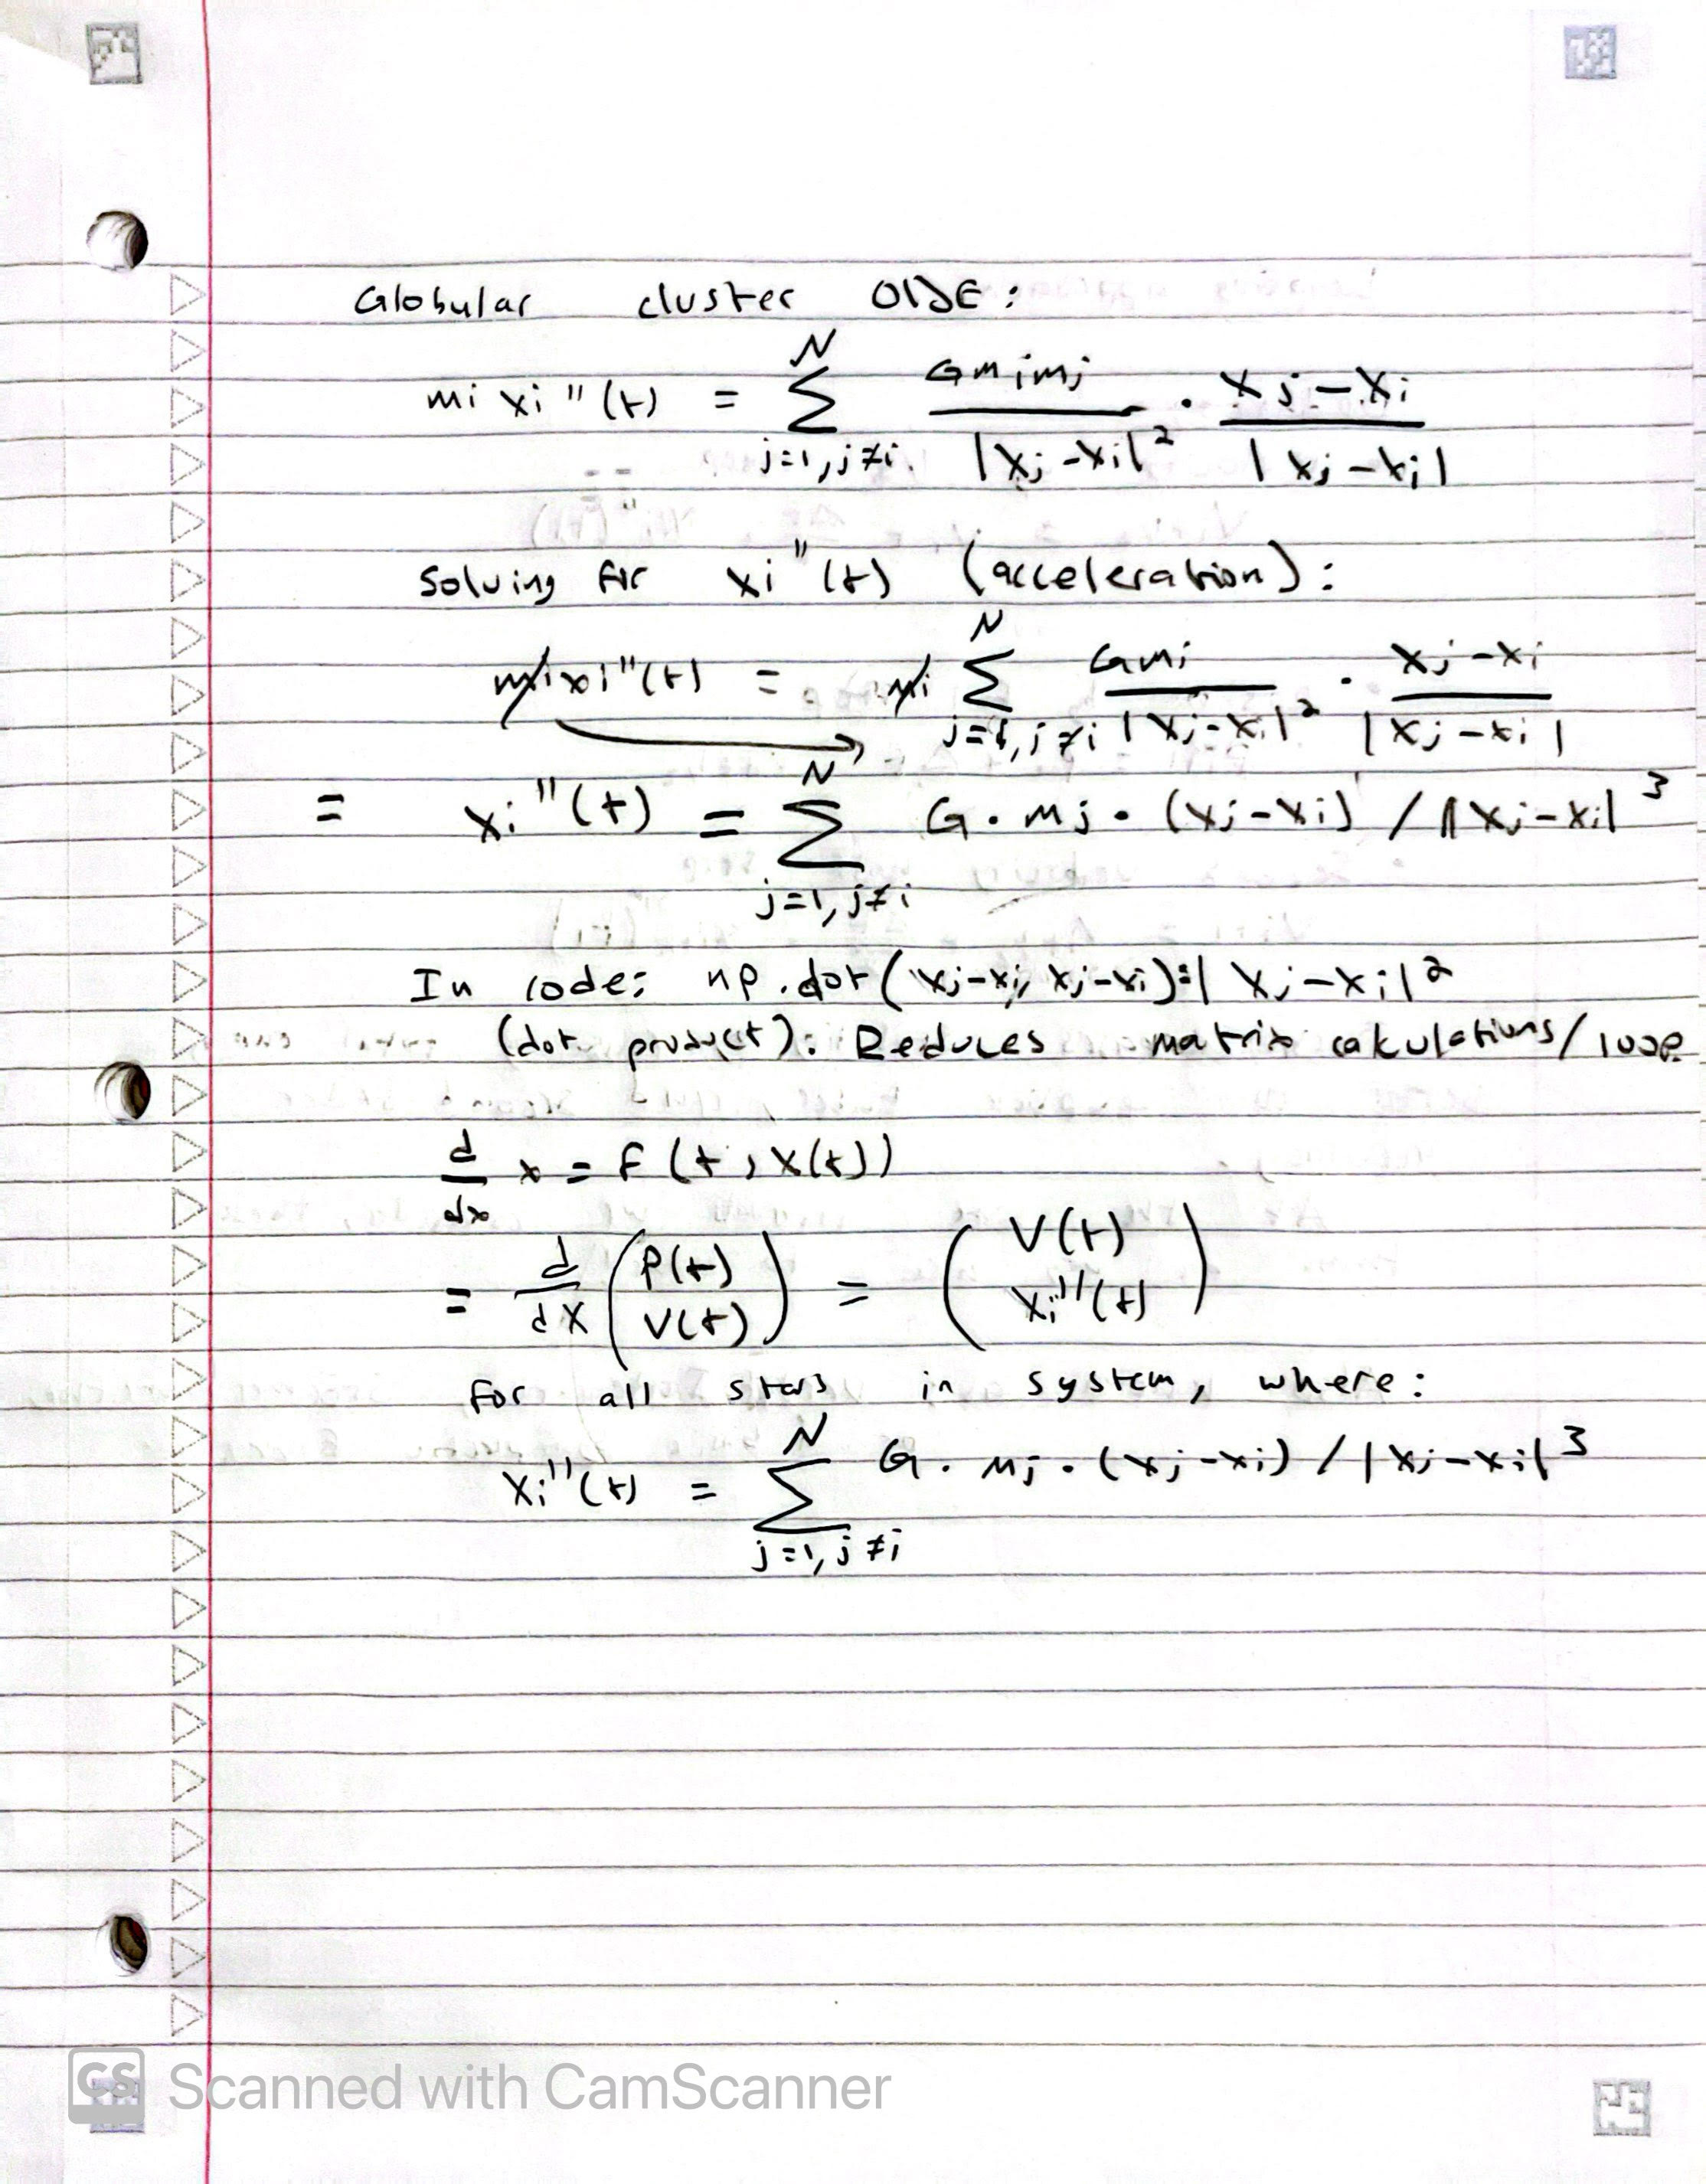 Globular cluster ODE:
mi xi''(t) = N∑j=1, j≠i Gmimj / |xj-xi|² · xj-xi / |xj-xi|
Solving for xi''(t) (acceleration):
mixi''(t) = mi N∑j=1, j≠i Gmj / |xj-xi|² · xj-xi / |xj-xi|
= xi''(t) = N∑j=1, j≠i G·mj·(xj-xi) / |xj-xi|³
In code: np.dot(xj-xi, xj-xi)=|xj-xi|²
(dot product): Reduces matrix calculations/loop
d/dx x = f(t, x(t))
= d/dx (P(t) V(t)) = (V(t) xi''(t))
for all stars in system, where:
xi''(t) = N∑j=1, j≠i G·mj·(xj-xi) / |xj-xi|³
CS Scanned with CamScanner